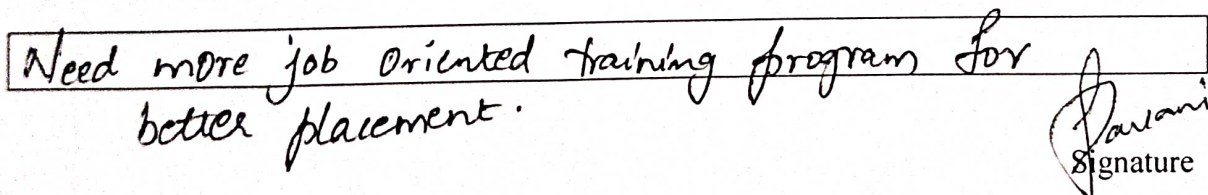 Need more job oriented training program for
better placement.
Pavani
Signature